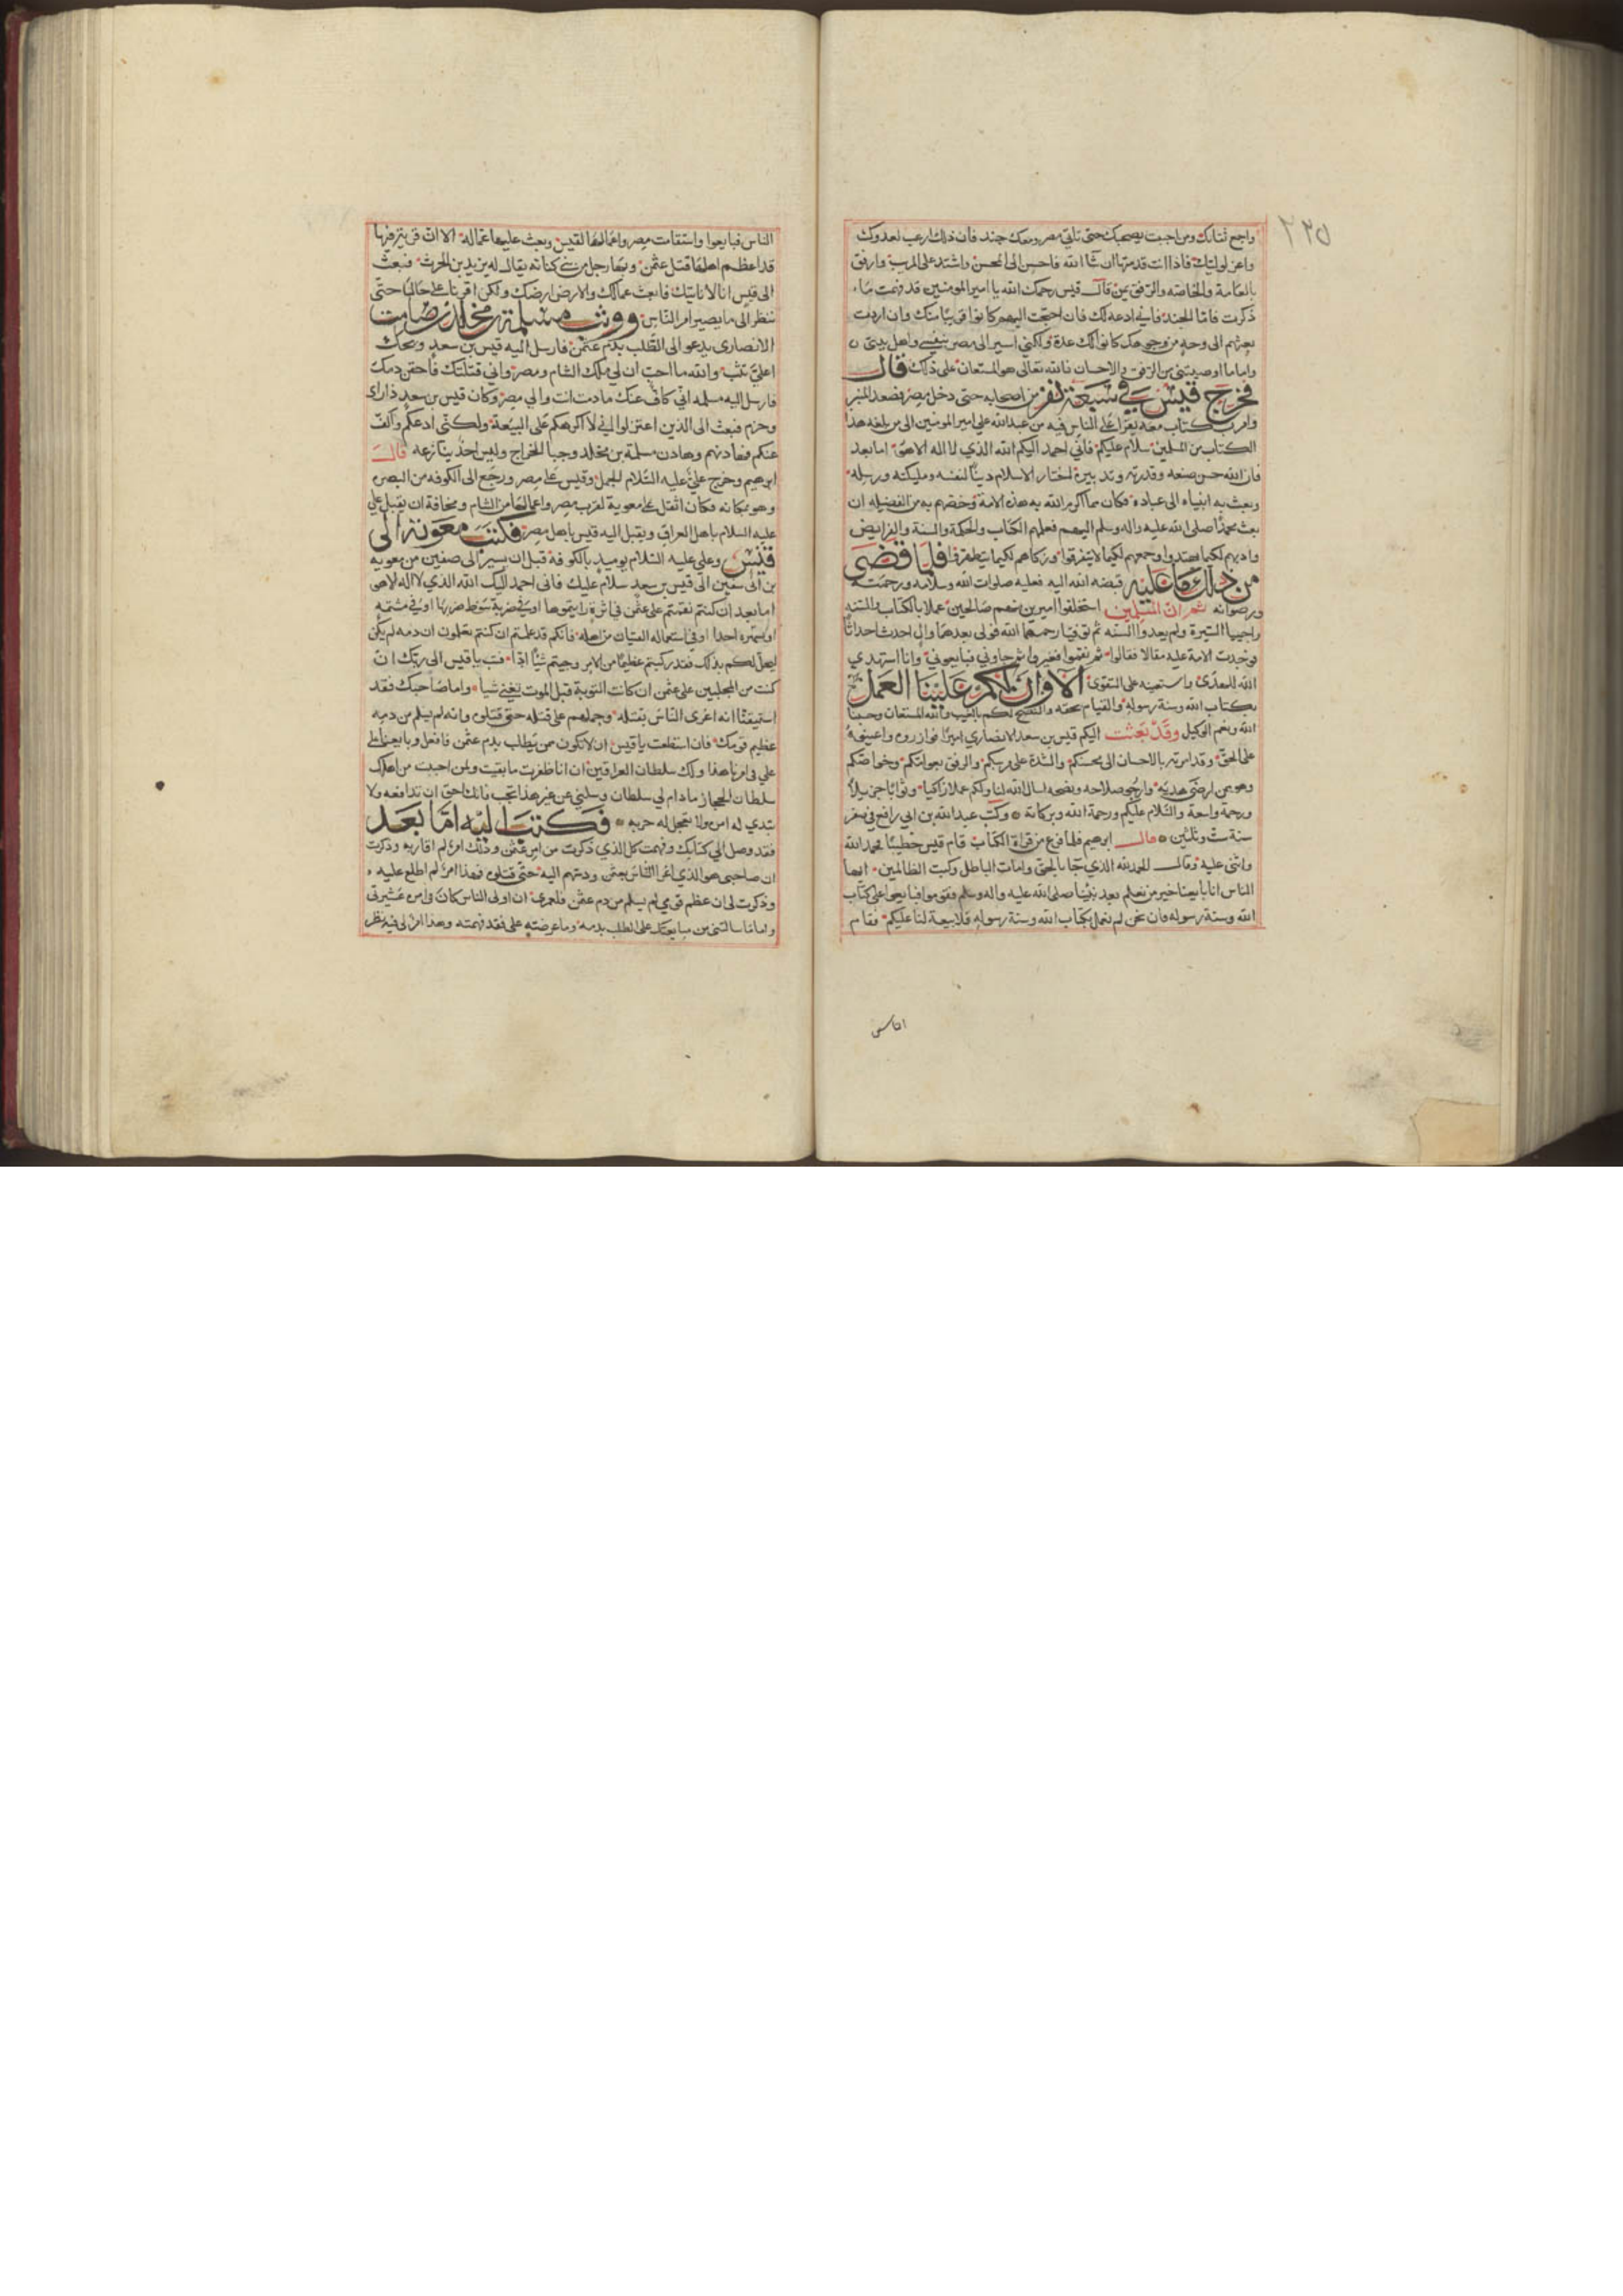 ٢٣٥
واجمع ثقاتك ومن احببت يصحبك حتى تاتي مصر ومعك جند فان ذلك ارعب لعدوك
واعز لوليك فاذا انت قدمتها ان شا الله فاحسن الى المحسن واشتد على المريب وارفق
بالعامة والخاصه والرفق يمن قال قيس رحمك الله يا امير المومنين قد فهمت ماء
ذكرت فاما الجند فاني ادعه لك فان احتجت اليهم كانوا قريبا منك وان اردت
بعثهم الى وجه من وجوهك كانوا لك عدة ولكني اسير الى مصر بنفسي واهل بيتي
واما ما اوصيتني من الرفق والاحسان فالله تعالى هو المستعان على ذلك قال
فخرج قيس في سبعة نفر من اصحابه حتى دخل مصر فصعد المنبر
وامر بكتاب معه يقرا على الناس فيه من عبدالله علي امير المومنين الى من بلغه هذا
الكتاب من المسلمين سلام عليكم فاني احمد اليكم الله الذي لا اله الا هو اما بعد
فان الله حسن صنعه وقدرته وتدبيره اختار الاسلام دينا لنفسه ومليكته ورسله
وبعث به انبياه الى عباده فكان مما اكرم الله به هذه الامة وخصهم به من الفضيله ان
بعث محمدا صلى الله عليه واله وسلم اليهم فعلمهم الكتاب والحكمة والسنة والفرايض
وادبهم لكيما يهتدوا وجمعهم لكيما لا يتفرقوا وزكاهم لكيما يتطهروا فلما قضى
من ذلك ما عليه قبضه الله اليه فعليه صلوات الله وسلامه ورحمته
ورضوانه ثم ان المسلمين استخلفوا اميرين منهم صالحين عملا بالكتاب والسنه
واحييا السيرة ولم يعدوا السنه ثم توفيا رحمهما الله فولى بعدهما وال احدث احداثا
فوجدت الامة عليه مقالا فقالوا ثم نقموا فغيروا ثم جاوني فبايعوني وانا استهدي
الله للهدى واستعينه على التقوى الا وان لكم علينا العمل
بكتاب الله وسنة رسوله والقيام بحقه والنصح لكم بالغيب والله المستعان وحسبنا
الله ونعم الوكيل وقد بعثت اليكم قيس بن سعد الانصاري اميرا فوازروه واعينوه
على الحق وقد امرته بالاحسان الى محسنكم والشدة على مريبكم والرفق بعوامكم وخواصكم
وهو ممن ارضى هديه وارجو صلاحه ونصحه نسال الله لنا ولكم عملا زاكيا وثوابا جزيلا
ورحمة واسعة والسلام عليكم ورحمة الله وبركاته وكتب عبدالله بن ابي رافع في صفر
سنة ست وثلثين قال ابرهيم فلما فرغ من قراة الكتاب قام قيس خطيبا فحمد الله
واثنى عليه وقال الحمد لله الذي جا بالحق وامات الباطل وكبت الظالمين ايها
الناس انا بايعنا خير من نعلم بعد نبينا صلى الله عليه واله وسلم فقوموا فبايعوا على كتاب
الله وسنة رسوله فان نحن لم نعمل بكتاب الله وسنة رسوله فلا بيعة لنا عليكم فقام
الناس
الناس فبايعوا واستقامت مصر واعمالها لقيس وبعث عليها عماله الا ان قرية فيها
قد اعظم اهلها قتل عثمن وبها رجل من بني كنانه يقال له يزيد بن الحرث فبعث
الى قيس انا لا ناتيك فابعث عمالك والارض ارضك ولكن اقرنا على حالنا حتى
ننظر الى ما يصير امر الناس ووثب مسلمة بن مخلد بن صامت
الانصاري يدعو الى الطلب بدم عثمن فارسل اليه قيس بن سعد ويحك
اعلي تثب والله ما احب ان لي ملك الشام ومصر واني قتلتك فاحقن دمك
فارسل اليه مسلمه اني كاف عنك ما دمت انت والي مصر وكان قيس بن سعد ذا راى
وحزم فبعث الى الذين اعتزلوا اني لا اكرهكم على البيعة ولكني ادعكم واكف
عنكم فهادنهم وهادن مسلمة بن مخلد وجبا الخراج وليس احد ينازعه قال
ابرهيم وخرج علي عليه السلام للجمل وقيس على مصر ورجع الى الكوفه من البصره
وهو بمكانه فكان اثقل على معوية لقرب مصر واعمالها من الشام ومخافة ان يقبل علي
عليه السلام باهل العراق ويقبل اليه قيس باهل مصر فكتب معوية الى
قيس وعلي عليه السلام يوميد بالكوفه قبل ان يسير الى صفين من معويه
بن ابي سفين الى قيس بن سعد سلام عليك فاني احمد اليك الله الذي لا اله الا هو
اما بعد ان كنتم نقمتم على عثمن في اثرة رايتموها او في ضربة سوط ضربها او في شتمه
او تميره احدا او في استعماله الفتيان من اهله فانكم قد علمتم ان كنتم تعلمون ان دمه لم يكن
ليحل لكم بذلك فقد ركبتم عظيما من الامر وجيتم شيا ادا فتب يا قيس الى ربك ان
كنت من المجلبين على عثمن ان كانت التوبة قبل الموت تغني شيا واما صاحبك فقد
استيقنا انه اغرى الناس بقتله وحملهم على قتله حتى قتلوه وانه لم يسلم من دمه
عظيم قومك فان استطعت يا قيس ان لا تكون ممن يطلب بدم عثمن فافعل وبايعنا على
علي في امرنا هذا ولك سلطان العراقين ان انا ظفرت ما بقيت ولمن احببت من اهلك
سلطان الحجاز ما دام لي سلطان وسلني عن غير هذا تحب فانك
تبدي له امره ولا تتعجل له حربه فكتب اليه اما بعد
فقد وصل الي كتابك وفهمت كل الذي ذكرت من امر عثمن وذلك امر لم اقاربه وذكرت
ان صاحبي هو الذي اغرا الناس بعثمن ودسهم اليه حتى قتلوه وهذا امر لم اطلع عليه
وذكرت لي ان عظم قومي لم يسلم من دم عثمن فلعمري ان اولى الناس كان في امره عشيرتي
واما ما سالتني من مبايعتك على الطلب بدمه وما عرضته علي فقد فهمته وهذا امر لي فيه نظر